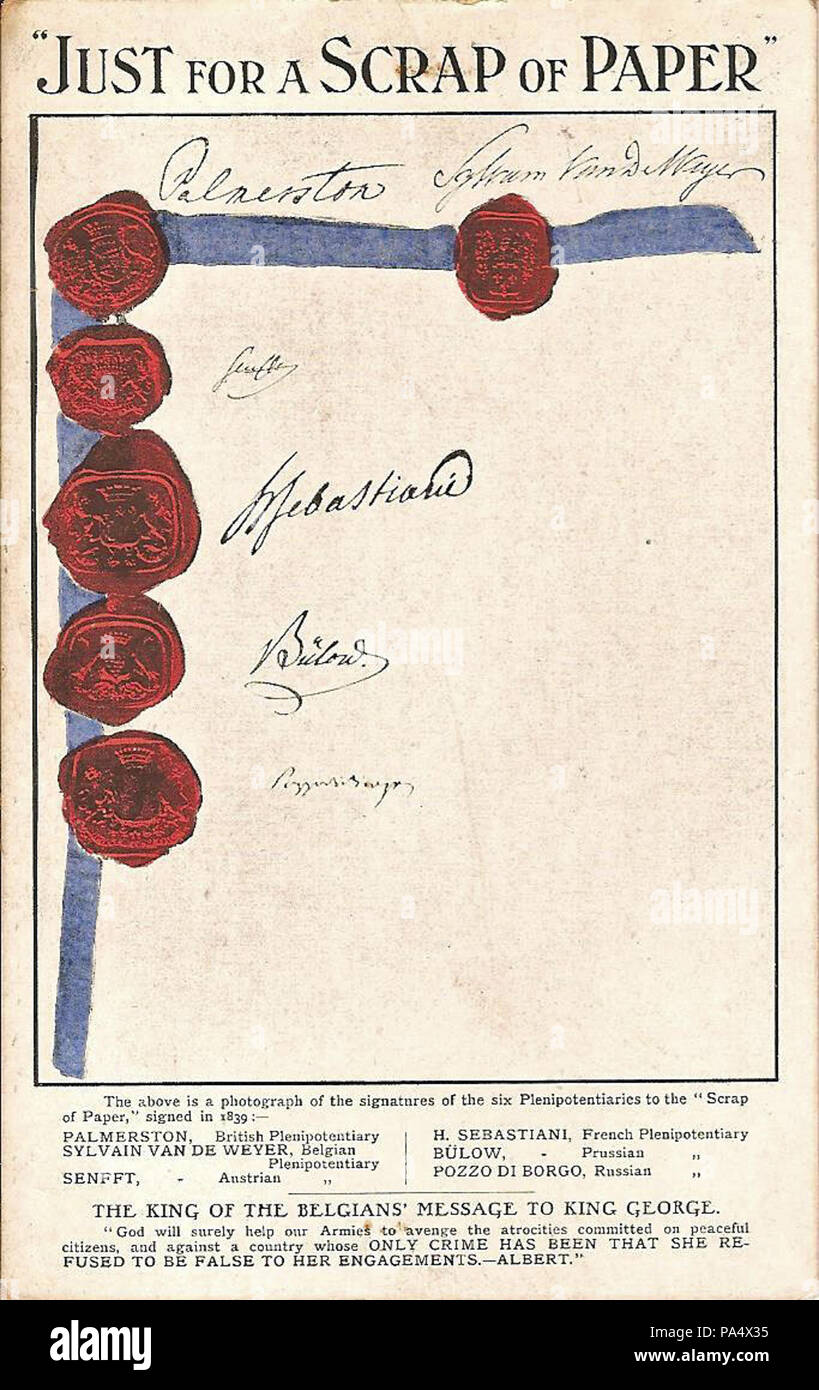 "JUST FOR A SCRAP OF PAPER"
Palmerston Sylvain Van De Weyer
Senfft
H Sebastiani
Bülow.
Pozzo di Borgo
The above is a photograph of the signatures of the six Plenipotentiaries to the "Scrap
of Paper," signed in 1839:—
PALMERSTON, British Plenipotentiary
SYLVAIN VAN DE WEYER, Belgian
Plenipotentiary
SENFFT, - Austrian „
H. SEBASTIANI, French Plenipotentiary
BÜLOW, - Prussian „
POZZO DI BORGO, Russian „
THE KING OF THE BELGIANS' MESSAGE TO KING GEORGE.
"God will surely help our Armies to avenge the atrocities committed on peaceful
citizens, and against a country whose ONLY CRIME HAS BEEN THAT SHE RE-
FUSED TO BE FALSE TO HER ENGAGEMENTS.—ALBERT."
alamy
alamy
alamy
alamy
Image ID: PA4X35
www.alamy.com